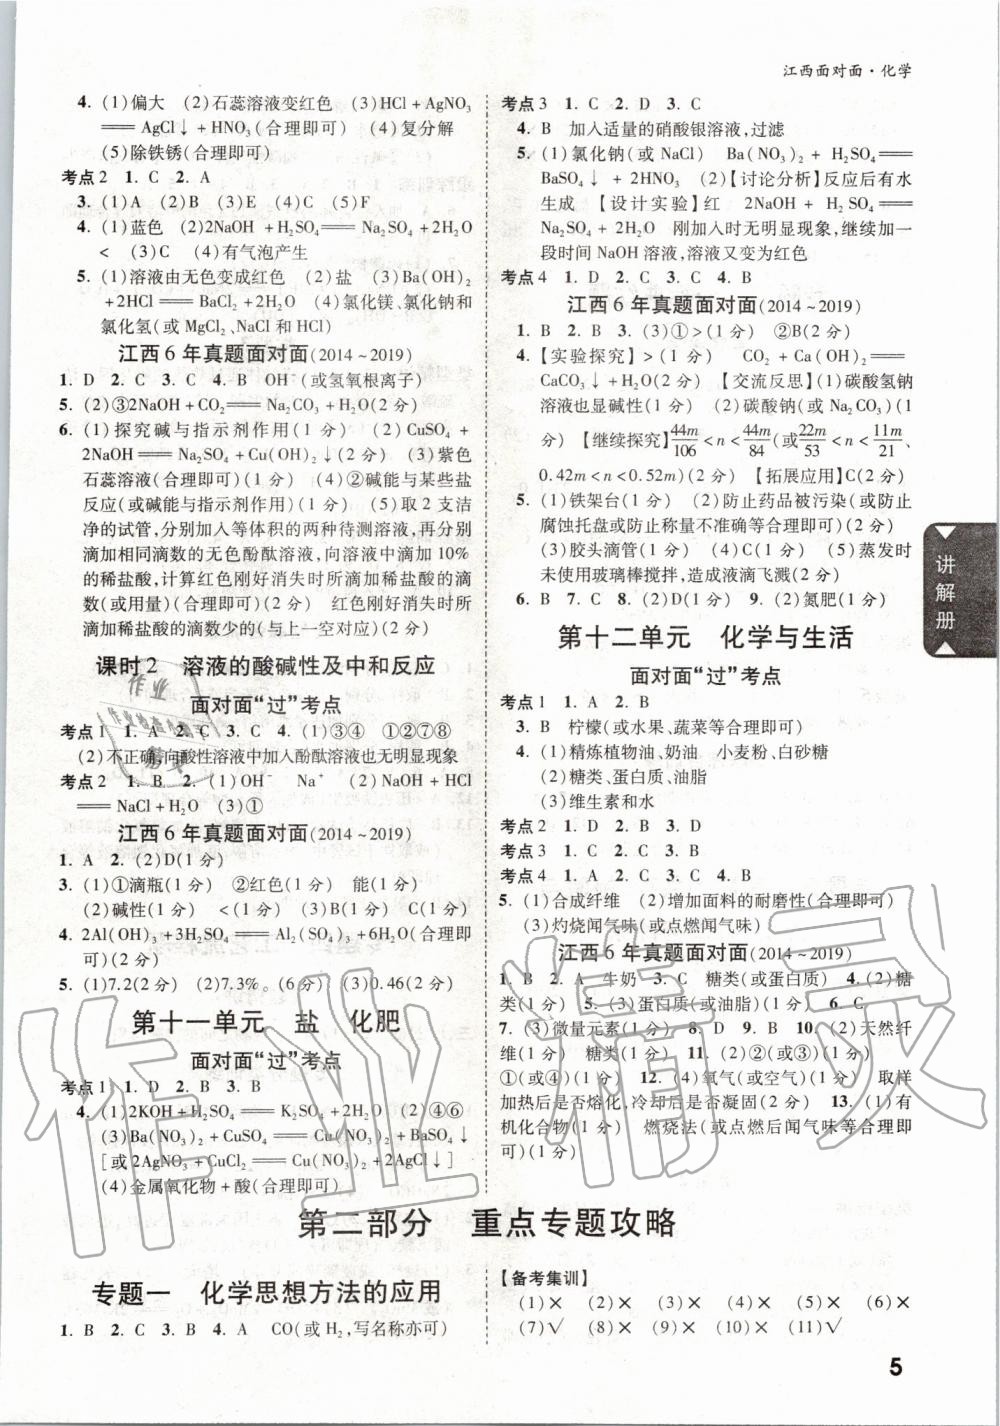 江西面对面·化学
4. (1)偏大 (2)石蕊溶液变红色 (3)HCl + AgNO₃
═══ AgCl↓ + HNO₃(合理即可) (4)复分解
(5)除铁锈(合理即可)
考点2 1. C 2. A
3. (1)A (2)B (3)E (4)C (5)F
4. (1)蓝色 (2)2NaOH + H₂SO₄═══Na₂SO₄ + 2H₂O
< (3)C (4)有气泡产生
5. (1)溶液由无色变成红色 (2)盐 (3)Ba(OH)₂
+2HCl═══BaCl₂ + 2H₂O (4)氯化镁、氯化钠和
氯化氢(或 MgCl₂、NaCl 和 HCl)
江西6年真题面对面(2014～2019)
1. D 2. C 3. C 4. B OH⁻(或氢氧根离子)
5. (2)③2NaOH + CO₂═══Na₂CO₃ + H₂O(2分)
6. (1)探究碱与指示剂作用(1分) (2)CuSO₄ +
2NaOH═══Na₂SO₄ + Cu(OH)₂↓(2分) (3)紫色
石蕊溶液(合理即可)(1分) (4)②碱能与某些盐
反应(或碱能与指示剂作用)(1分) (5)取2支洁
净的试管,分别加入等体积的两种待测溶液,再分别
滴加相同滴数的无色酚酞溶液,向溶液中滴加10%
的稀盐酸,计算红色刚好消失时所滴加稀盐酸的滴
数(或用量)(合理即可) 红色刚好消失时所
滴加稀盐酸的滴数少的(与上一空对应)(2分)
课时2 溶液的酸碱性及中和反应
面对面“过”考点
考点1 1. A 2. C 3. C 4. (1)③④ ①②⑦⑧
(2)不正确,向酸性溶液中加入酚酞溶液也无明显现象
考点2 1. B 2. (1)OH⁻ Na⁺ (2)NaOH + HCl
═══NaCl + H₂O (3)①
江西6年真题面对面(2014～2019)
1. A 2. (2)D(1分)
3. (1)①滴瓶(1分) ②红色(1分) 能(1分)
(2)碱性(1分) <(1分) (3)B(1分)
4. 2Al(OH)₃ + 3H₂SO₄═══Al₂(SO₄)₃ + 6H₂O(合理
即可)(2分)
5. (1)7.2(2分) (2)7.3%。(6分) (3)0.46(2分)
第十一单元 盐 化肥
面对面“过”考点
考点1 1. D 2. B 3. B
4. (1)2KOH + H₂SO₄═══K₂SO₄ + 2H₂O (2)④⑥
(3)Ba(NO₃)₂ + CuSO₄═══Cu(NO₃)₂ + BaSO₄↓
[或2AgNO₃ + CuCl₂═══Cu(NO₃)₂ + 2AgCl↓]
(4)金属氧化物 + 酸(合理即可)
考点3 1. C 2. D 3. C
4. B 加入适量的硝酸银溶液,过滤
5. (1)氯化钠(或 NaCl) Ba(NO₃)₂ + H₂SO₄═══
BaSO₄↓ + 2HNO₃ (2)【讨论分析】反应后有水
生成 【设计实验】红 2NaOH + H₂SO₄═══
Na₂SO₄ + 2H₂O 刚加入时无明显现象,继续加一
段时间 NaOH 溶液,溶液又变为红色
考点4 1. D 2. C 3. C 4. B
江西6年真题面对面(2014～2019)
1. B 2. B 3. (3)①>(1分) ②B(2分)
4. 【实验探究】>(1分) CO₂ + Ca(OH)₂═══
CaCO₃↓ + H₂O(2分) 【交流反思】(1)碳酸氢钠
溶液也显碱性(1分) (2)碳酸钠(或 Na₂CO₃)(1
分) 【继续探究】44m/106 < n < 44m/84 (或 22m/53 < n < 11m/21 、
0.42m < n < 0.52m)(2分) 【拓展应用】C(2分)
5. (1)铁架台(1分) (2)防止药品被污染(或防止
腐蚀托盘或防止称量不准确等合理即可)(2分)
(3)胶头滴管(1分) (4)B(2分) (5)蒸发时
未使用玻璃棒搅拌,造成液滴飞溅(2分)
6. B 7. C 8. (2)D(1分) 9. (2)氮肥(1分)
第十二单元 化学与生活
面对面“过”考点
考点1 1. A 2. B
3. B 柠檬(或水果、蔬菜等合理即可)
4. (1)精炼植物油、奶油 小麦粉、白砂糖
(2)糖类、蛋白质、油脂
(3)维生素和水
考点2 1. D 2. D 3. C 4. B
考点3 1. C 2. B 3. D
考点4 1. A 2. C 3. C 4. B
5. (1)合成纤维 (2)增加面料的耐磨性(合理即可)
(3)灼烧闻气味(或点燃闻气味)
江西6年真题面对面(2014～2019)
1. B 2. A 牛奶 3. C 糖类(或蛋白质) 4. (2)糖
类(1分) 5. (3)蛋白质(或油脂)(1分) 6. C
7. (3)微量元素(1分) 8. D 9. B 10. (2)天然纤
维(1分) 糖类(1分) 11. (2)(或③)(1分)
①(或④)(1分) 12. (4)氧气(或空气)(1分) 取样
加热后是否熔化,冷却后是否凝固(2分) 13. (1)有
机化合物(1分) 燃烧法(或点燃后闻气味等合理即
可)(1分)
第二部分 重点专题攻略
专题一 化学思想方法的应用
1. B 2. C 3. B 4. A CO(或 H₂,写名称亦可)
【备考集训】
(1)× (2)× (3)× (4)× (5)× (6)×
(7)√ (8)× (9)× (10)× (11)√
讲解册
5
作业精灵